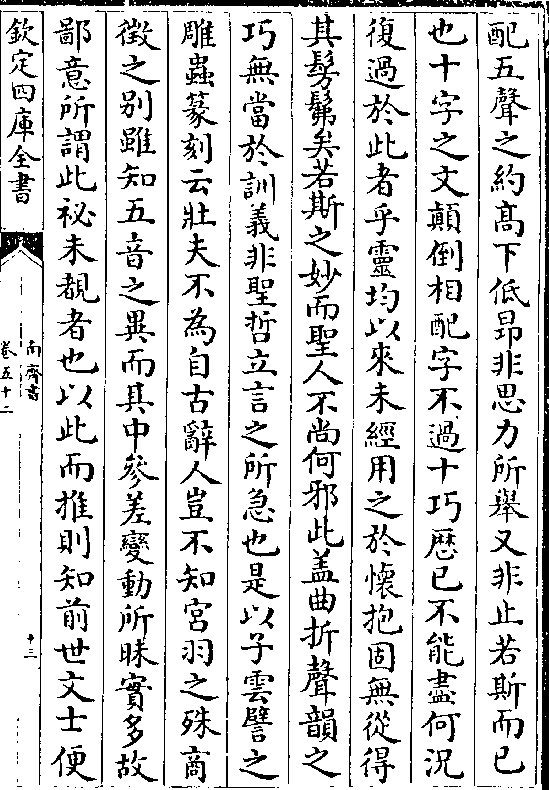 配五聲之約髙下低昂非思力所舉又非止若斯而已
也十字之文顛倒相配字不過十巧歴已不能盡何況
復過於此者乎靈均以來未經用之於懷抱固無從得
其髣髴矣若斯之妙而聖人不尚何邪此盖曲折聲韻之
巧無當於訓義非聖哲立言之所急也是以子雲譬之
雕蟲篆刻云壯夫不為自古辭人豈不知宮羽之殊商
徵之别雖知五音之異而其中參差變動所昧實多故
鄙意所謂此祕未覩者也以此而推則知前世文士便
欽定四庫全書
南齊書
卷五十二
十三